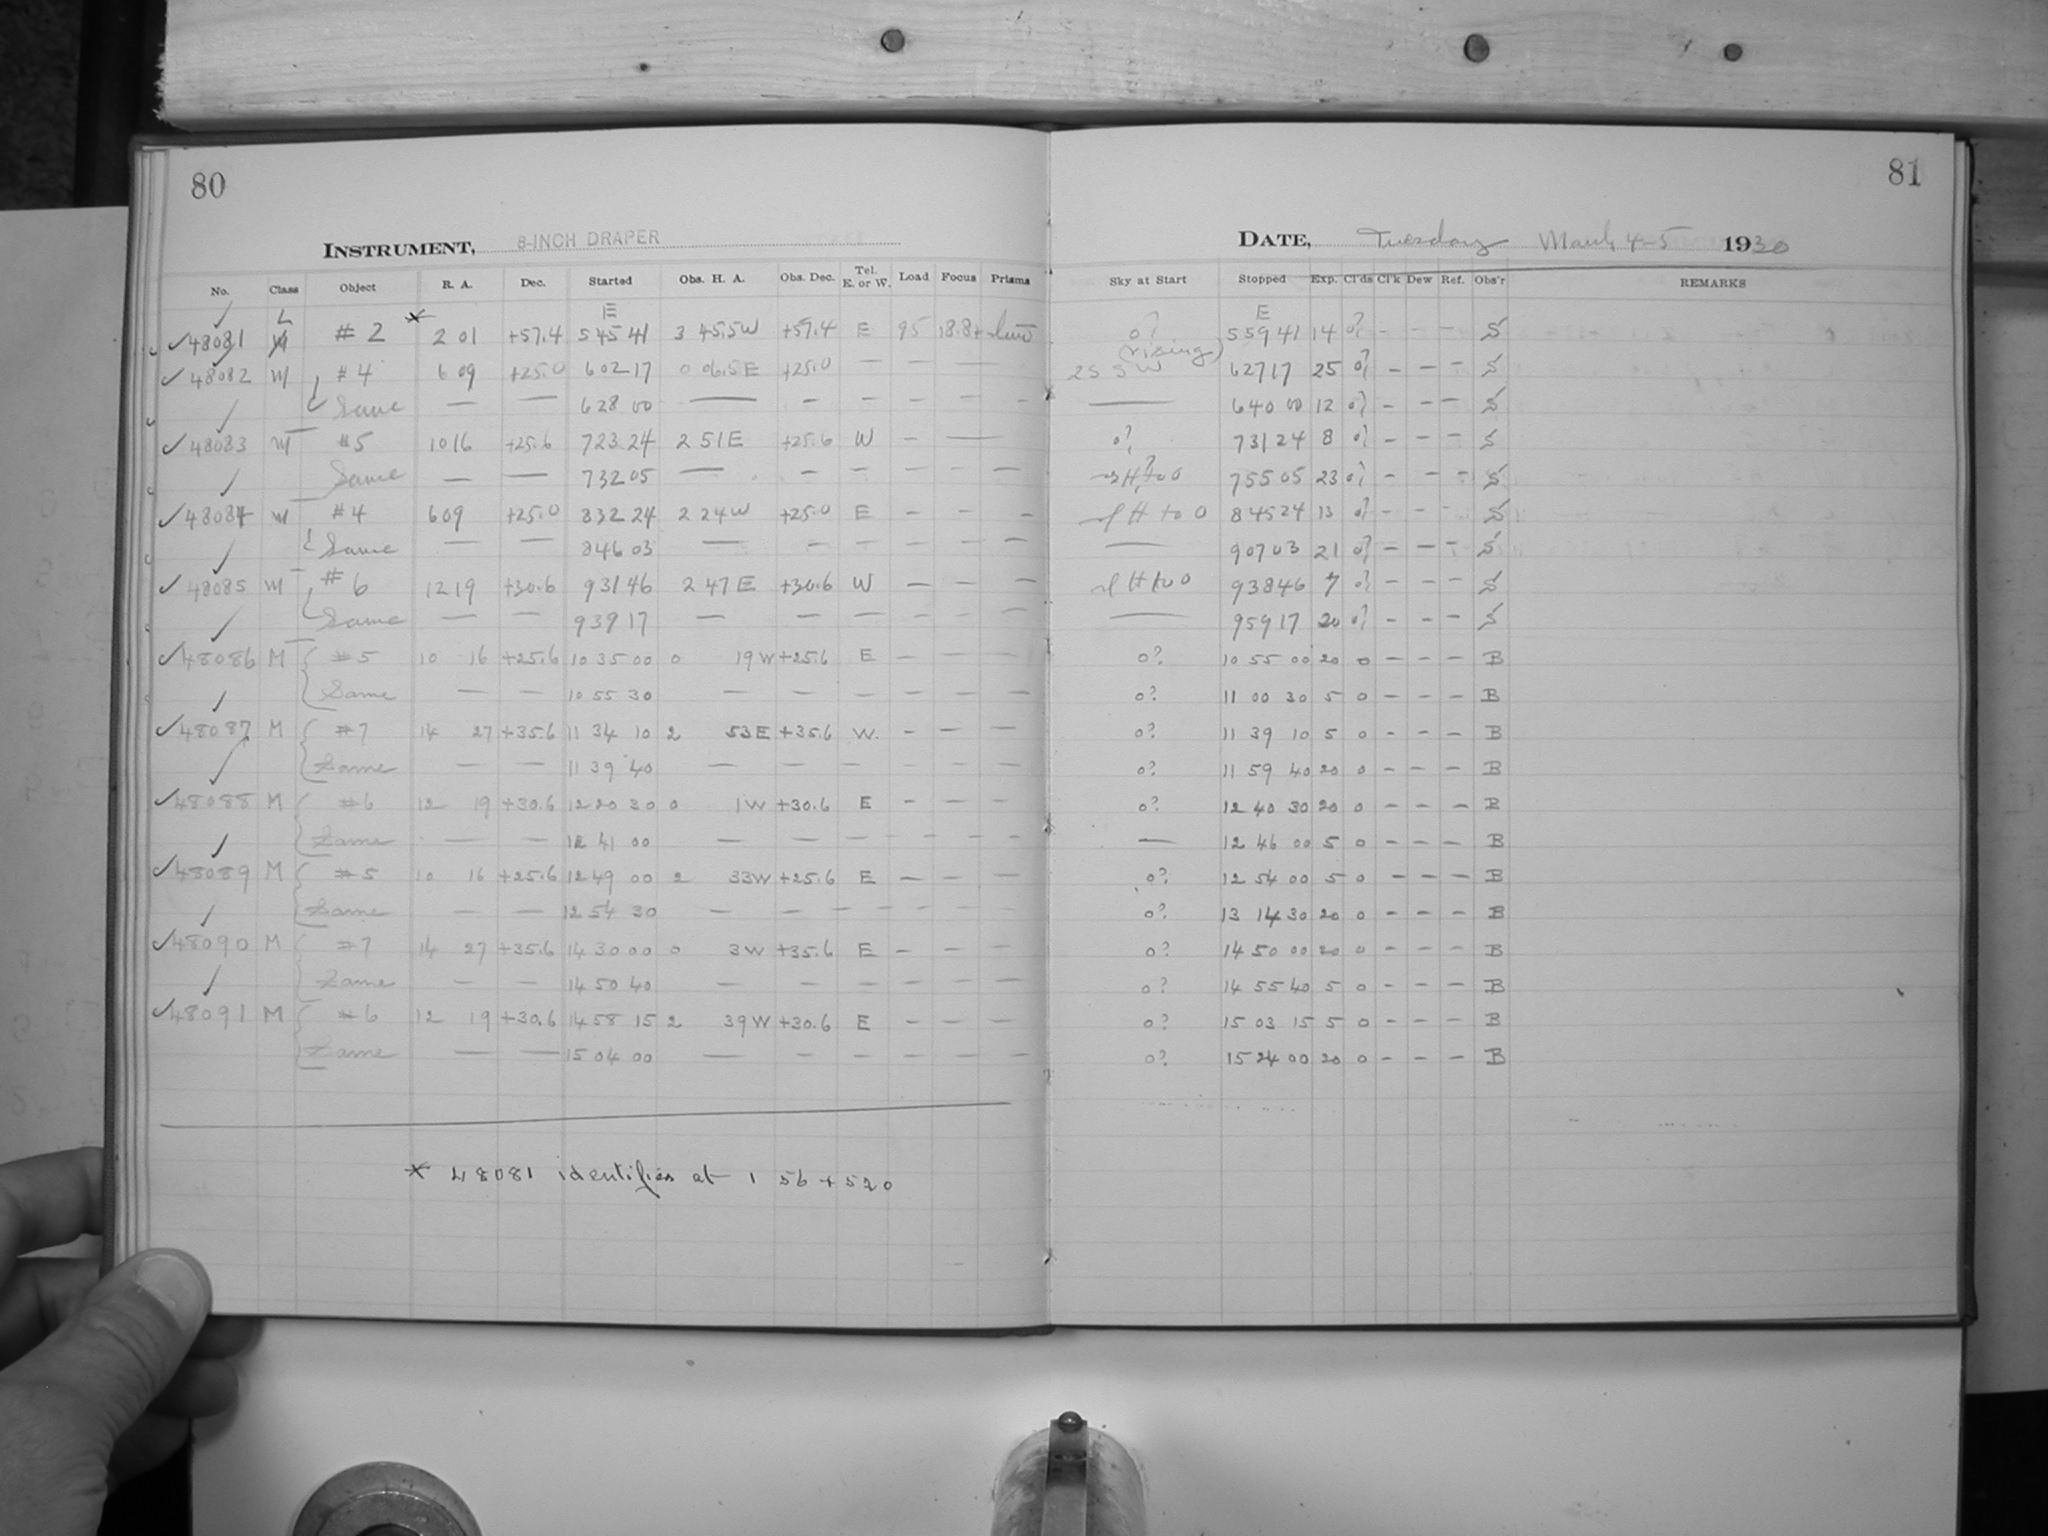 80
INSTRUMENT, 8-INCH DRAPER
No. Class Object R. A. Dec. Started Obs. H. A. Obs. Dec. Tel. E. or W. Load Focus Prisms
L E
✓ 48081 M #2 * 2 01 +57.4 5 45 41 3 45.5W +57.4 E 95 18.8+
✓ 48082 M #4 6 09 +25.0 6 02 17 0 06.5E +25.0 — — — —
Same — — 6 28 00 — — — — — —
✓ 48083 M #5 10 16 +25.6 7 23 24 2 51E +25.6 W — —
Same — — 7 32 05 — — — — — —
✓ 48084 M #4 6 09 +25.0 8 32 24 2 24W +25.0 E — — —
Same — — 8 46 03 — — — — — —
✓ 48085 M #6 12 19 +30.6 9 31 46 2 47E +30.6 W — — —
Same — — 9 39 17 — — — — — —
✓ 48086 M #5 10 16 +25.6 10 35 00 0 19W +25.6 E — — —
Same — — 10 55 30 — — — — — —
✓ 48087 M #7 14 27 +35.6 11 34 10 2 53E +35.6 W. — — —
Same — — 11 39 40 — — — — — —
✓ 48088 M #6 12 19 +30.6 12 20 30 0 1W +30.6 E — — —
Same — — 12 41 00 — — — — — —
✓ 48089 M #5 10 16 +25.6 12 49 00 2 33W +25.6 E — — —
Same — — 12 54 30 — — — — — —
✓ 48090 M #7 14 27 +35.6 14 30 00 0 3W +35.6 E — — —
Same — — 14 50 40 — — — — — —
✓ 48091 M #6 12 19 +30.6 14 58 15 2 39W +30.6 E — — —
Same — — 15 04 00 — — — — — —
* 48081 identifies at 1 56 + 520
81
DATE, Tuesday March 4-5 1930
Sky at Start Stopped Exp. Cl'ds Cl'k Dew Ref. Obs'r REMARKS
E
0? 5 59 41 14 0? - - - S
(rising)
2S SW 6 27 17 25 0? - - - S
— 6 40 00 12 0? - - - S
0? 7 31 24 8 0? - - - S
7 55 05 23 0? - - - S
sl H to 0 8 45 24 13 0? - - - S
— 9 07 03 21 0? - - - S
sl H to 0 9 38 46 7 0? - - - S
— 9 59 17 20 0? - - - S
0? 10 55 00 20 0 - - - B
0? 11 00 30 5 0 - - - B
0? 11 39 10 5 0 - - - B
0? 11 59 40 20 0 - - - B
0? 12 40 30 20 0 - - - B
— 12 46 00 5 0 - - - B
0? 12 54 00 5 0 - - - B
0? 13 14 30 20 0 - - - B
0? 14 50 00 20 0 - - - B
0? 14 55 40 5 0 - - - B
0? 15 03 15 5 0 - - - B
0? 15 24 00 20 0 - - - B